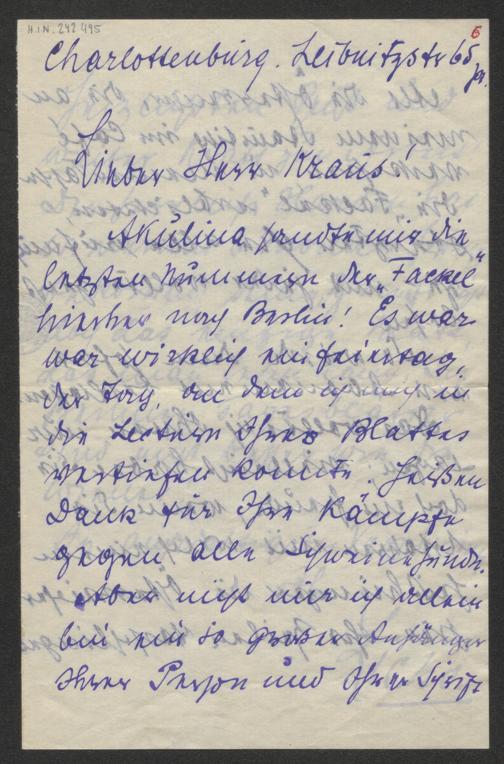 H.I.N. 242 495
6
Charlottenburg. Leibnitzstr 65
Lieber Herr Kraus!
Akulina sandte mir die
letzten Nummern der „Fackel"
hierher nach Berlin! Es war
war wirklich ein Feiertag,
der Tag, an dem ich mich in
die Lectüre Ihres Blattes
vertiefen konnte. Heißen
Dank für Ihre Kämpfe
gegen alle Schweinehunde.
Aber nicht nur ich allein
bin ein so großer Anhänger
Ihrer Person und Ihrer Schrift